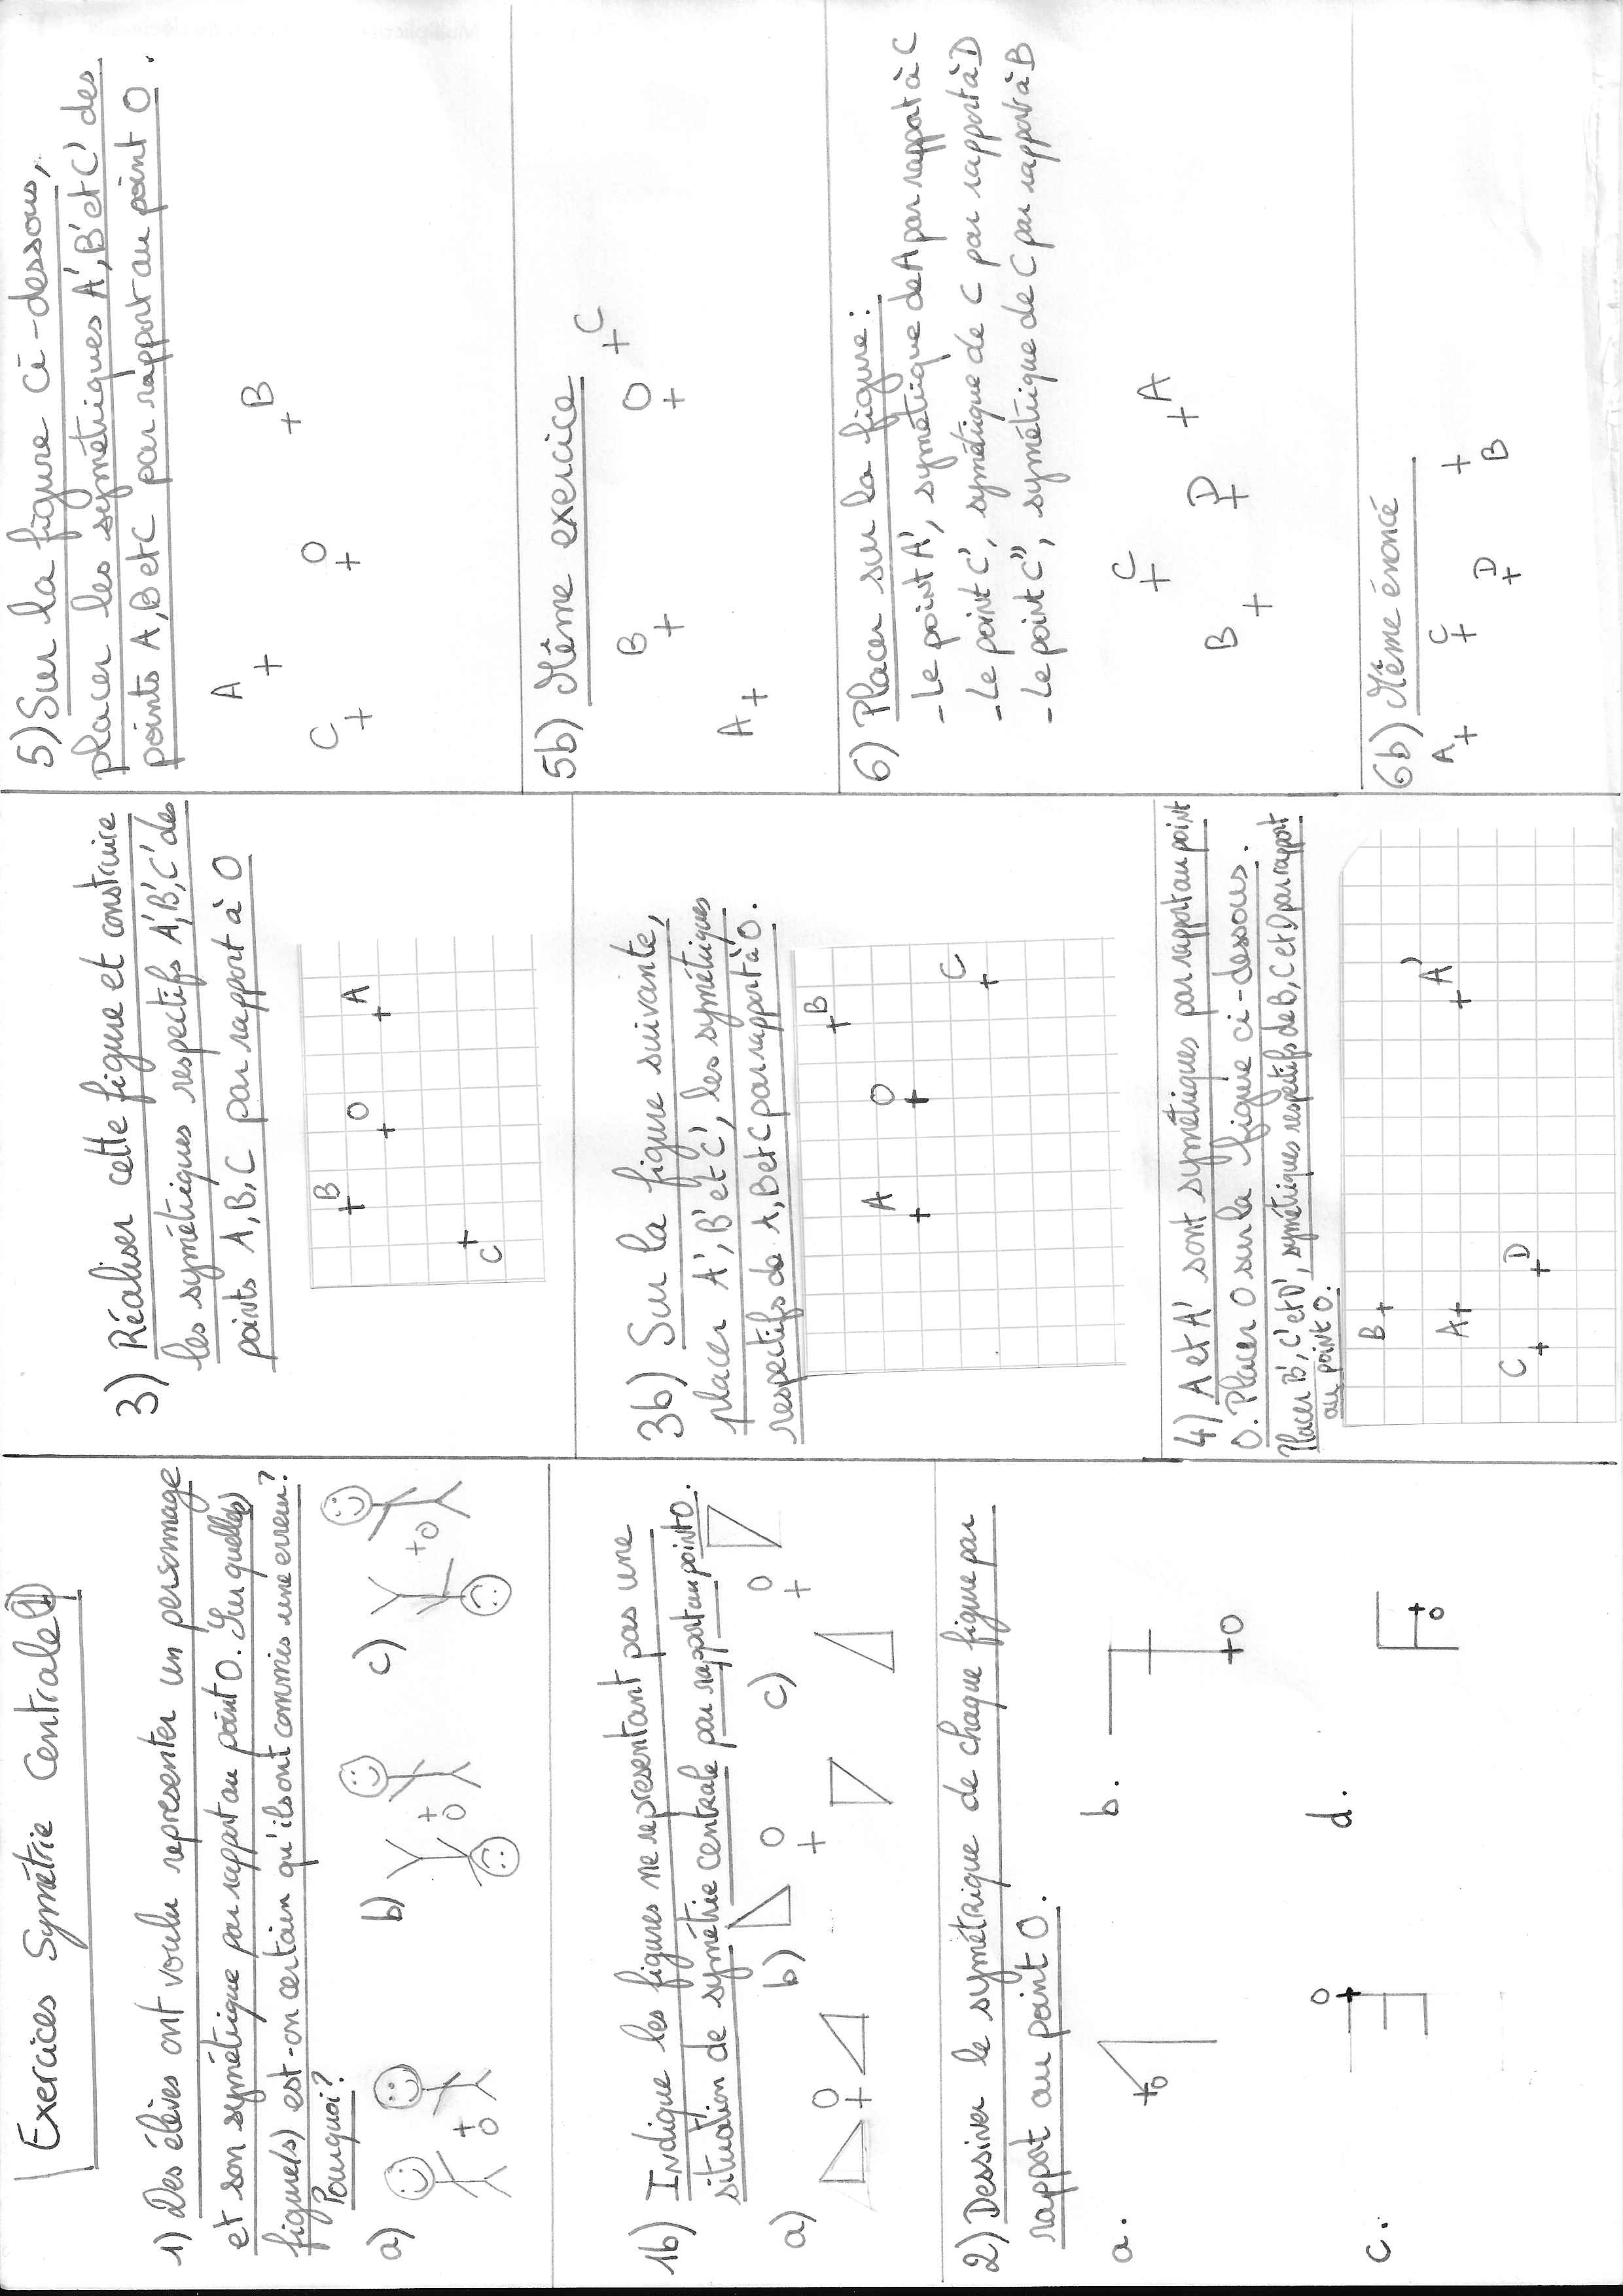 Exercices Symétrie Centrale ①
1) Des élèves ont voulu représenter un personnage
et son symétrique par rapport au point O. Sur quelle(s)
figure(s) est-on certain qu'ils ont commis une erreur?
Pourquoi?
a)
+
O
b)
+
O
c)
+
O
1b) Indique les figures ne représentant pas une
situation de symétrie centrale par rapport au point O.
a)
O
+
b)
O
+
c)
O
+
2) Dessiner le symétrique de chaque figure par
rapport au point O.
a.
O
b.
O
c.
O
d.
O
3) Réaliser cette figure et construire
les symétriques respectifs A', B', C' de
points A, B, C par rapport à O
B
O
A
C
3b) Sur la figure suivante,
placer A', B' et C', les symétriques
respectifs de A, B et C par rapport à O.
B
A
O
C
4) A et A' sont symétriques par rapport au point
O. Placer O sur la figure ci-dessous.
Placer B', C' et D', symétriques respectifs de B, C et D par rapport
au point O.
B
A
A'
C
D
5) Sur la figure ci-dessous,
placer les symétriques A', B' et C' des
points A, B et C par rapport au point O.
A
B
C
O
5b) Même exercice
B
O
C
A
6) Placer sur la figure :
- Le point A', symétrique de A par rapport à C
- Le point C', symétrique de C par rapport à D
- Le point C'', symétrique de C par rapport à B
C
A
B
D
6b) Même énoncé
A
C
D
B